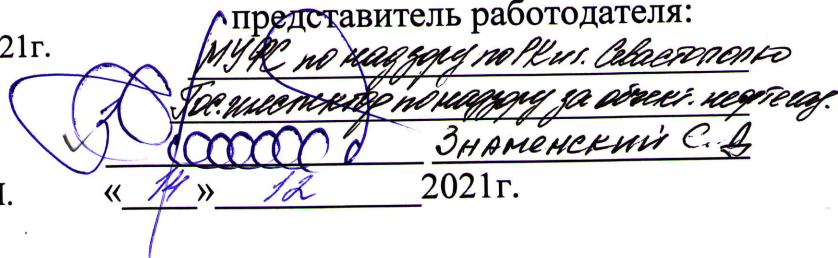 представитель работодателя:
21г.
МУФС по надзору по РК и г. Севастополю
Гос. инспектор по надзору за объект. нефтегаз.
Знаменский С.
«14» 12 2021г.